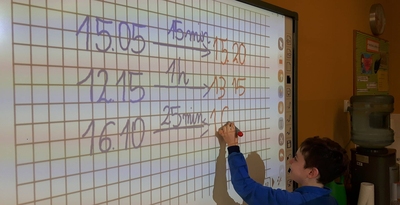 15.05 15min 15.20
12.15 1h 13.15
16.10 25min 1